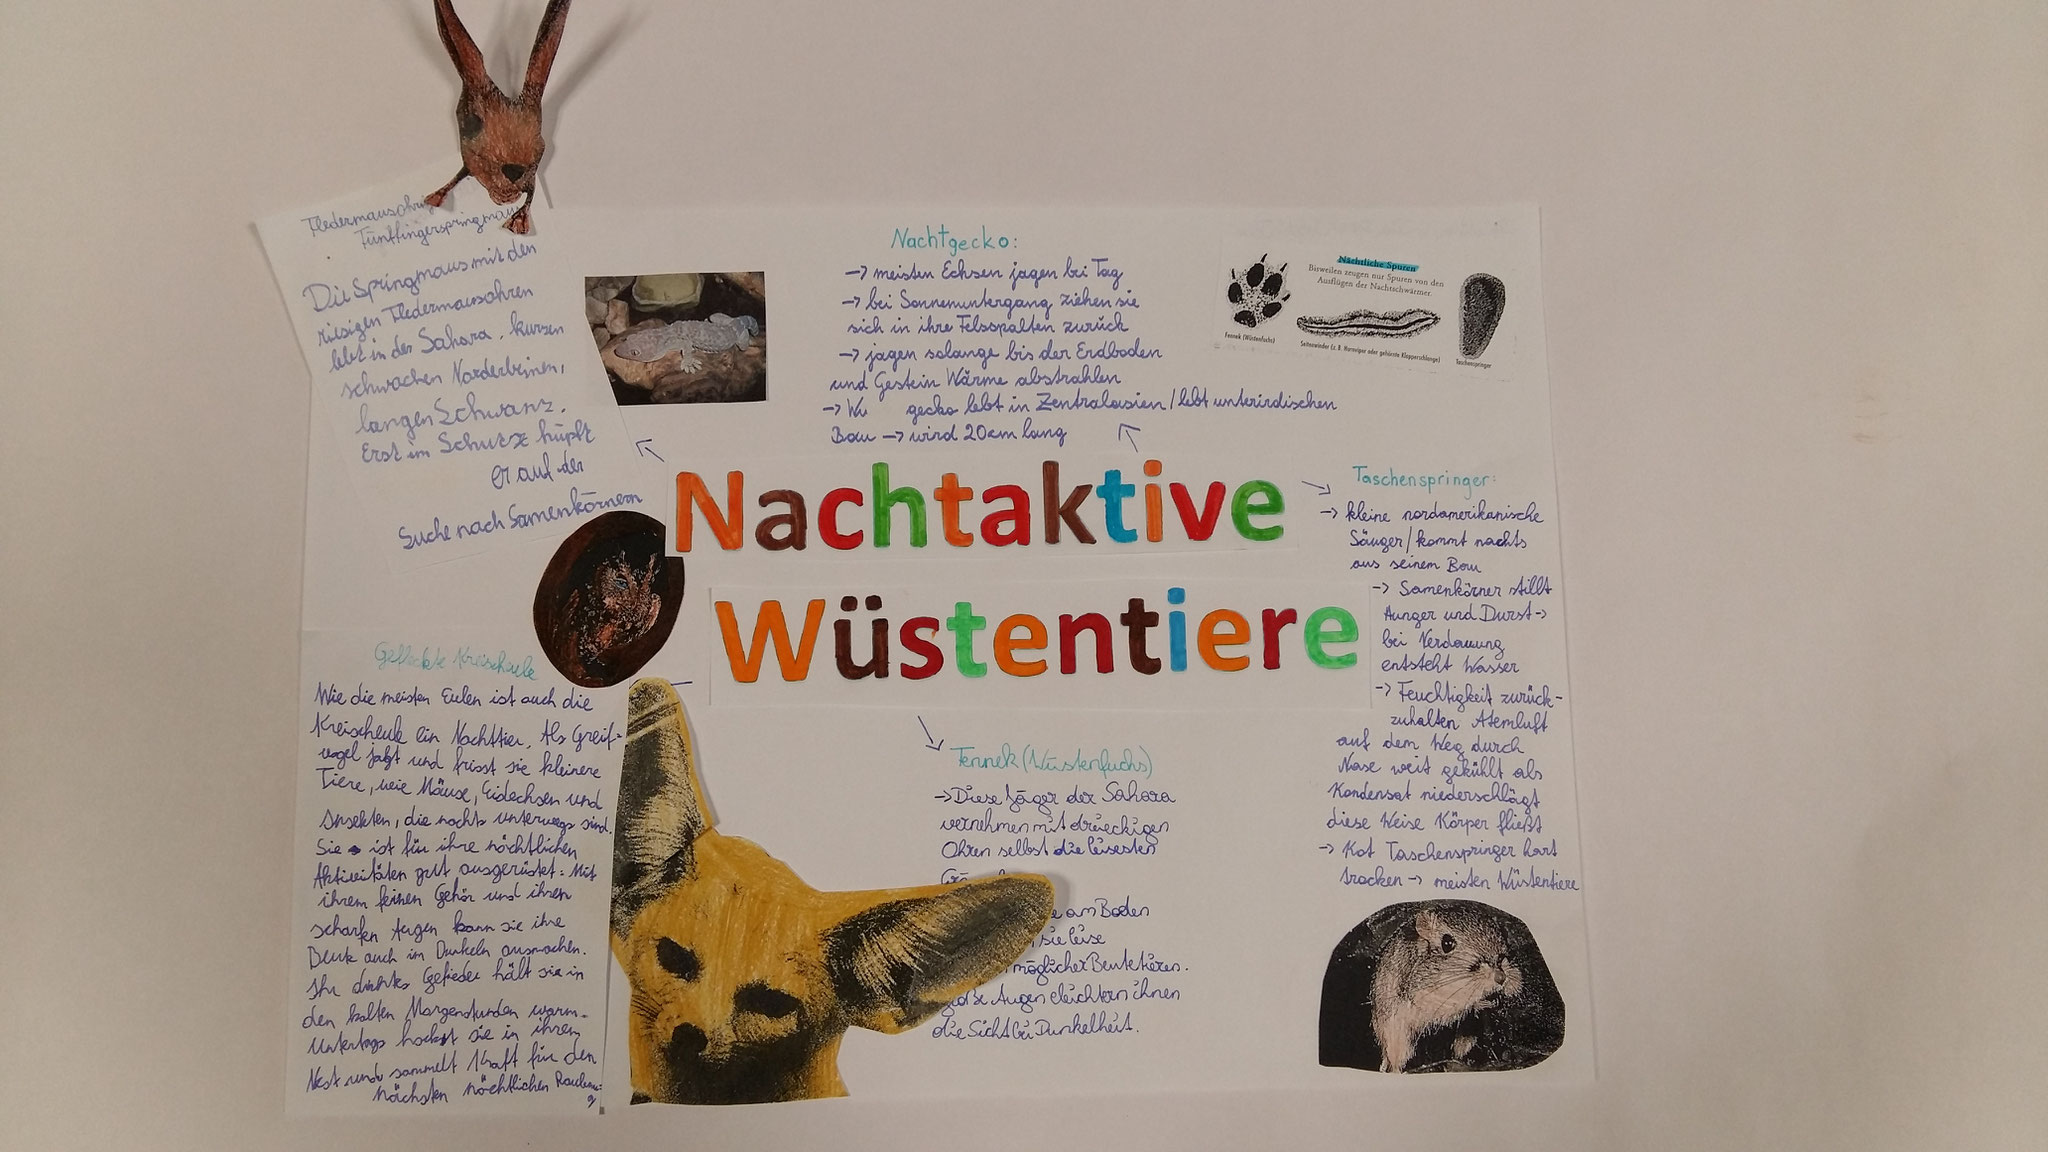 Fledermausohrig
Fünffingerspringmaus
Die Springmaus mit den
riesigen Fledermausohren
lebt in der Sahara. kurzen
schwachen Vorderbeinen,
langen Schwanz.
Erst im Schutz hüpft
er auf der
Suche nach Samenkörnern
Nachtgecko:
→ meisten Echsen jagen bei Tag
→ bei Sonnenuntergang ziehen sie
sich in ihre Felsspalten zurück
→ jagen solange bis der Erdboden
und Gestein Wärme abstrahlen
→ Wu gecko lebt in Zentralasien / lebt unterirdischen
Bau → wird 20cm lang
Nächtliche Spuren
Bisweilen zeugen nur Spuren von den
Ausflügen der Nachtschwärmer.
Fennek (Wüstenfuchs)
Seitenwinder (z. B. Hornviper oder gehörnte Klapperschlange)
Taschenspringer
Nachtaktive
Wüstentiere
Taschenspringer:
→ kleine nordamerikanische
Säuger / kommt nachts
aus seinem Bau
→ Samenkörner stillt
Hunger und Durst →
bei Verdauung
entsteht Wasser
→ Feuchtigkeit zurück-
zuhalten Atemluft
auf dem Weg durch
Nase weit gekühlt als
Kondensat niederschlägt
diese Weise Körper fließt
→ Kot Taschenspringer hart
trocken → meisten Wüstentiere
Gefleckte Kreischeule
Wie die meisten Eulen ist auch die
Kreischeule ein Nachttier. Als Greif-
vogel jagt und frisst sie kleinere
Tiere, wie Mäuse, Eidechsen und
Insekten, die nachts unterwegs sind.
Sie ist für ihre nächtlichen
Aktivitäten gut ausgerüstet: Mit
ihrem feinen Gehör und ihren
scharfen Augen kann sie ihre
Beute auch im Dunkeln ausmachen.
Ihr dichtes Gefieder hält sie in
den kalten Morgenstunden warm.
Untertags hockt sie in ihrem
Nest und sammelt Kraft für den
nächsten nächtlichen
Fennek (Wüstenfuchs)
→ Diese Jäger der Sahara
vernehmen mit dreieckigen
Ohren selbst die leisesten
am Boden
sie leise
möglicher Beutetieren.
große Augen erleichtern ihnen
die Sicht bei Dunkelheit.